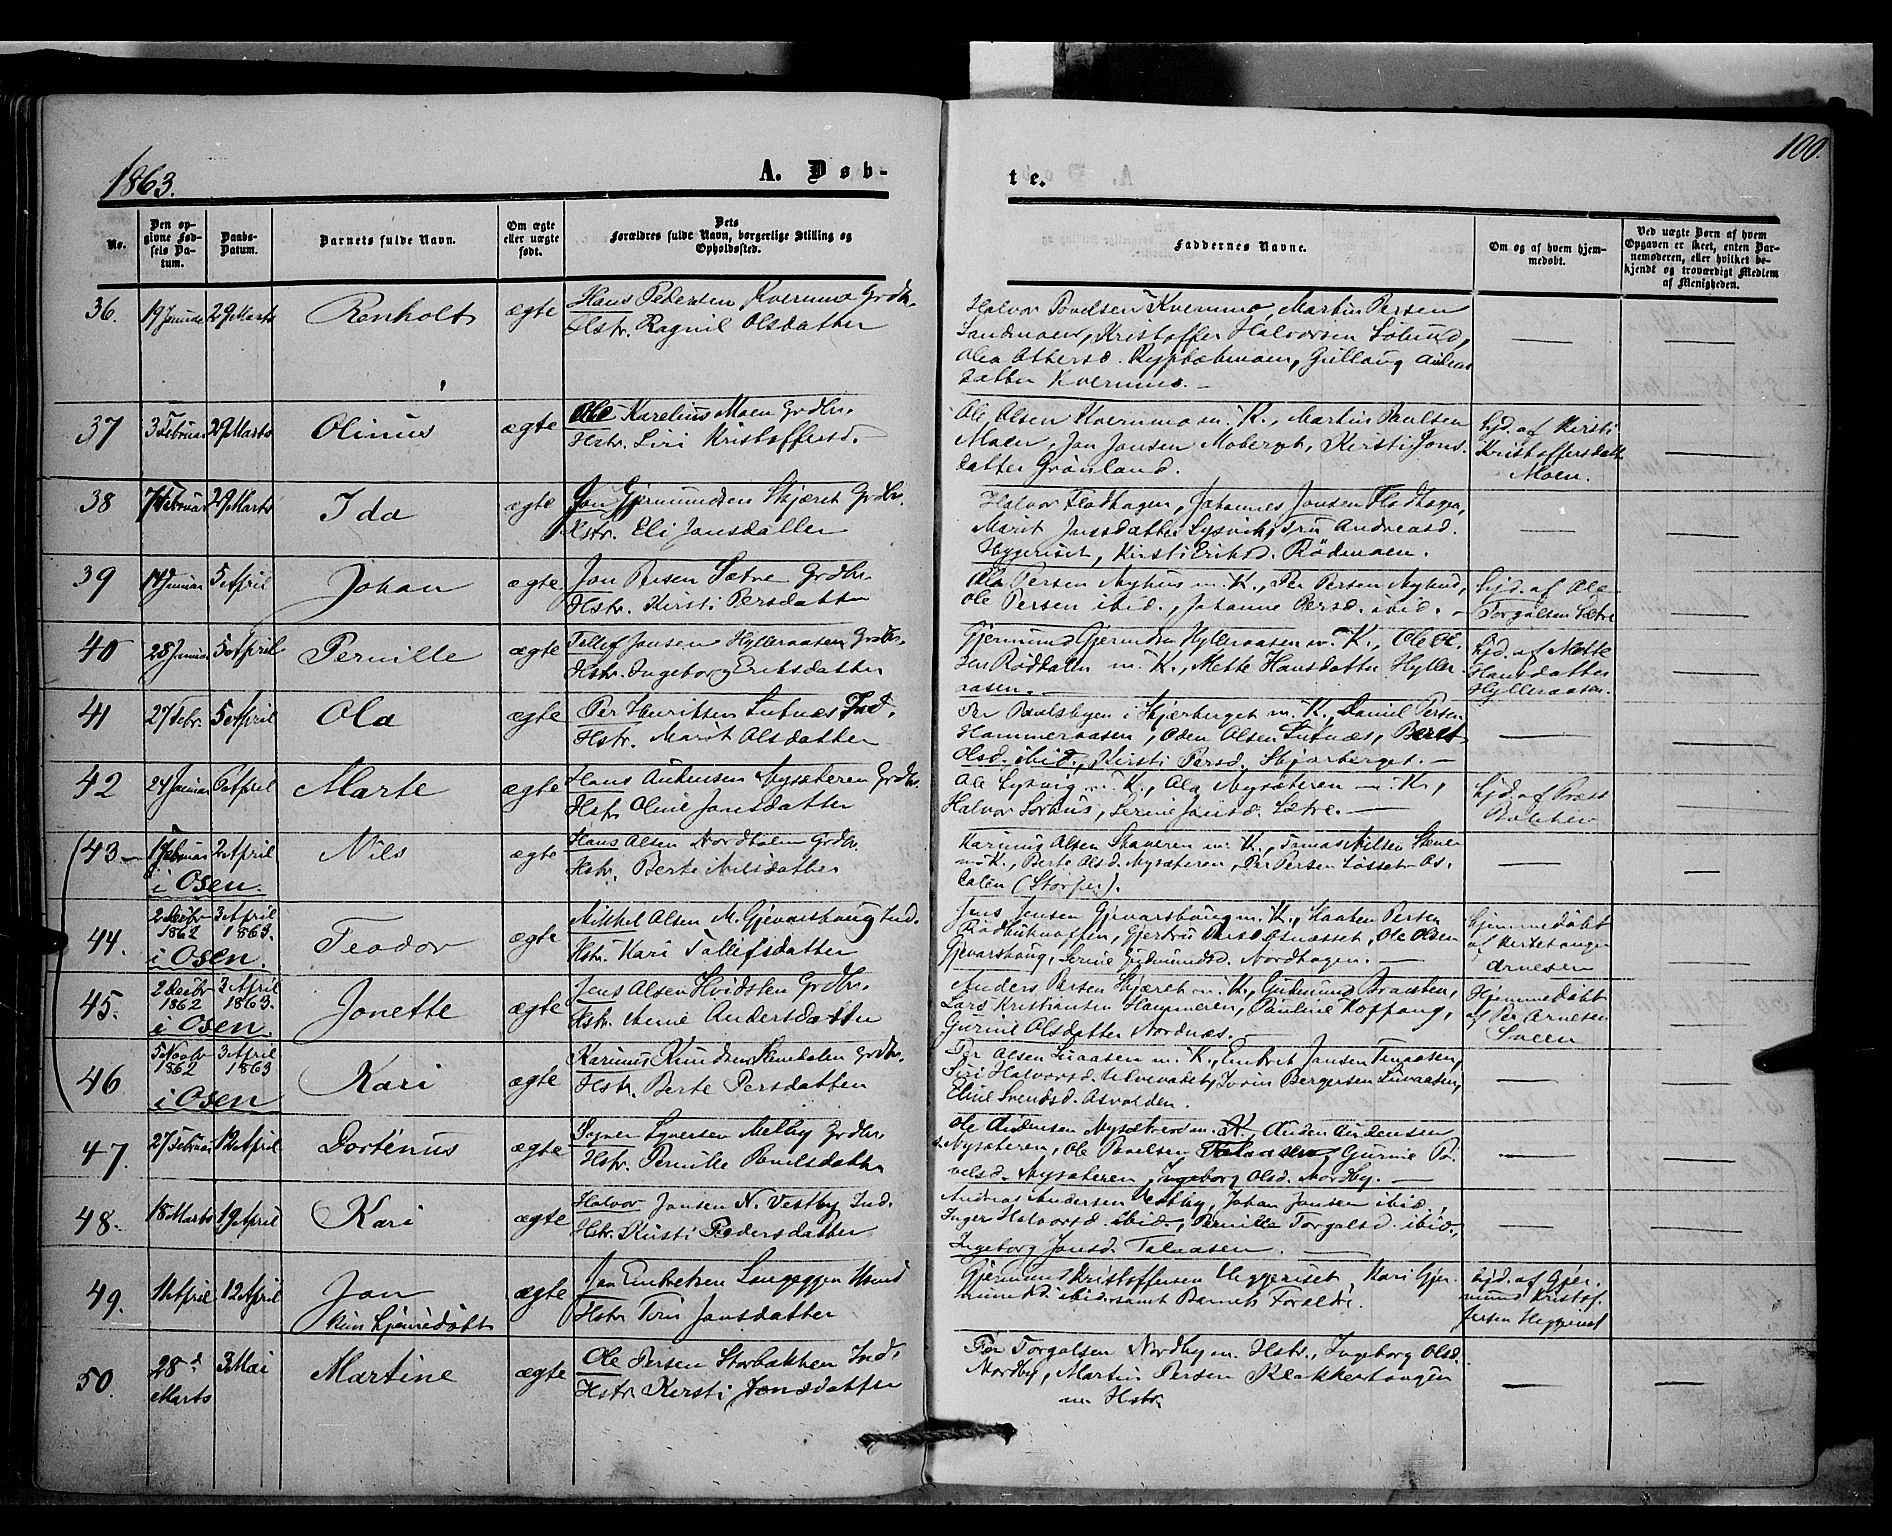 1863.
A. Døb-
te.
100.
No.
Den op-
givne Fød-
sels Da-
tum.
Daabs-
Datum.
Barnets fulde Navn.
Om ægte
eller uægte
født.
Dets
Forældres fulde Navn, borgerlige Stilling og
Opholdssted.
Faddernes Navne.
Om og af hvem hjem-
medøbt.
Ved uægte Børn af hvem
Opgaven er skeet, enten Bar-
nemoderen, eller hvilket be-
kjendt og troværdigt Medlem
af Menigheden.
36. 19 Januar 29 Marts Renholt ægte Hans Pedersen Kvernmo Grdbr.
Hstr. Ragnil Olsdatter
Halvor Povelsen Kvernmo, Martin Persen
Sandmoen, Kristoffer Halvorsen Sølund,
Olea Gullaug Audens
datter Kvernmo. —
37 3 Februar 29 Marts Olinus ægte Ole Karelius Moen Grdbr.
Hstr. Siri Kristoffersd. —
Ole Olsen Kvernmo m. K., Martin Paulsen
Moen, Jon Jonsen Moberget, Kersti Jons
datter Grønland.
Hjd. af Kirsti
Kristoffersdatt
Moen.
38 7 Februar 29 Marts Ida ægte Jon Gjermundsen Skjæret Grdbr.
Hstr. Eli Jonsdatter
Halvor Flodhagen, Johannes Jonsen Flodhagen,
Marit Jonsdatter Lysvik, Tru Andreasd.
Heggeriset, Kirsti Eriksd. Rødmoen.
39 14 Januar 5 April Johan ægte Jon Persen Sætre Grdbr.
Hstr. Kirsti Persdatter
Ola Persen Nyhus m. K., Per Persen Nyhus,
Ole Persen ibid., Johanne Persd. ibid. —
Hjd. af Ole
Torgalsen Sætre
40 28 Januar 5 April Pernille ægte Tellef Jonsen Hylleraasen Grdbr.
Hstr. Ingeborg Eriksdatter
Gjermund Gjermundsen Hylleraasen m. K., Ole Ol
sen Røddalen m. K., Mette Hansdatter Hyller
aasen. —
Hjd. af Mette
Hansdatter
Hylleraasen.
41 27 Febr. 5 April Ola ægte Per Henriksen Lutnæs Ind.
Hstr. Marit Olsdatter
Per Paulsbyen i Skjærberget m. K., Daniel Persen
Hammeraasen, Oden Olsen Lutnæs, Beret
Olsd. ibid., Kirsti Persd. Skjærberget. —
42 24 Januar 6 April Marte ægte Hans Audensen Nysæteren Grdbr.
Hstr. Oline Jonsdatter
Ole Lysvig m. K., Ola Nysæteren m. K.,
Halvor Sørhus, Serine Jonsd. Sætre. —
Hjd. af Præst
43 — 1 Februar 2 April Nils ægte Hans Olsen Nordholen Grdbr.
i Osen. Hstr. Berte Nilsdatter
Karinus Olsen Stoveren m. K., Tomas Nilsen
m. K., Berte Olsd. Nysæteren, Per Persen Løsset Os
dalen (Storj.).
44. 2 Decbr 1862 3 April 1863. Teodor ægte Mikkel Olsen M. Gjevarshaug Ind.
i Osen. Hstr. Kari Tollifsdatter
Jens Jensen Gjevarshaug m. K., Staaten Persen
Gjertru Osnæsset, Ole Olsen
Gjevarshaug, Serine Gudmundsd. Nordhagen. —
Hjemmedøbt
af
Arnesen
45. 2 Decbr 1862 3 April 1863. Jonette ægte Jens Olsen Hvidsten Grdbr.
i Osen. Hstr. Anne Andersdatter
Anders Persen Skjæret m. K., Gudmund Braaten,
Lars Kristiansen Hammeren, Pauline Koppang,
Gurine Olsdatter Nordnæs. —
Hjemmedøbt
af Per Arnesen
Sveen
46 5 Novbr 1862 3 April 1863 Kari ægte Karinus Knudsen Grdbr.
i Osen Hstr. Berte Persdatter
Per Olsen m. K., Embret Jonsen
Siri Halvorsd. Ulvevadet,
Eline Svendsd. Osvolden.
47. 27 Februar 12 April Dortenus ægte Syver Syversen Melby Grdbr.
Hstr. Pernille Povelsdatter
Ole Audensen Nysæteren m. K. Auden Audensen
Nysæteren, Ole Povelsen Talaasen, Gurine Po
velsd. Nysæteren, Ingeborg Olsd. Nordby. —
48. 18 Marts 19 April Kari ægte Halvor Jonsen N. Vestby Ind.
Hstr. Kirsti Pedersdatter
Andreas Andersen Vestby, Johan Jonsen ibid.,
Inger Halvorsd. ibid., Pernille Torgalsd. ibid.,
Ingeborg Jonsd. Talaasen.
49. 11 April 12 April Jon ægte Jon Embretsen Langeggen Husmd
kun hjemmedøbt Hstr. Turi Jonsdatter
Gjermund Kristoffersen Heggeriset, Kari Gjer
mundsd. ibid. samt Barnets Forældre.
Hjd. af Gjer
mund Kristof
fersen Heggeriset
50. 28d Marts 3 Mai Martine ægte Ole Persen Storbakken Ind.
Hstr. Kersti Jonsdatter
Per Torgalsen Nordby m. Hstr., Ingeborg Olsd.
Nordby, Martin Persen Klokkerhaugen
m. Hstr.